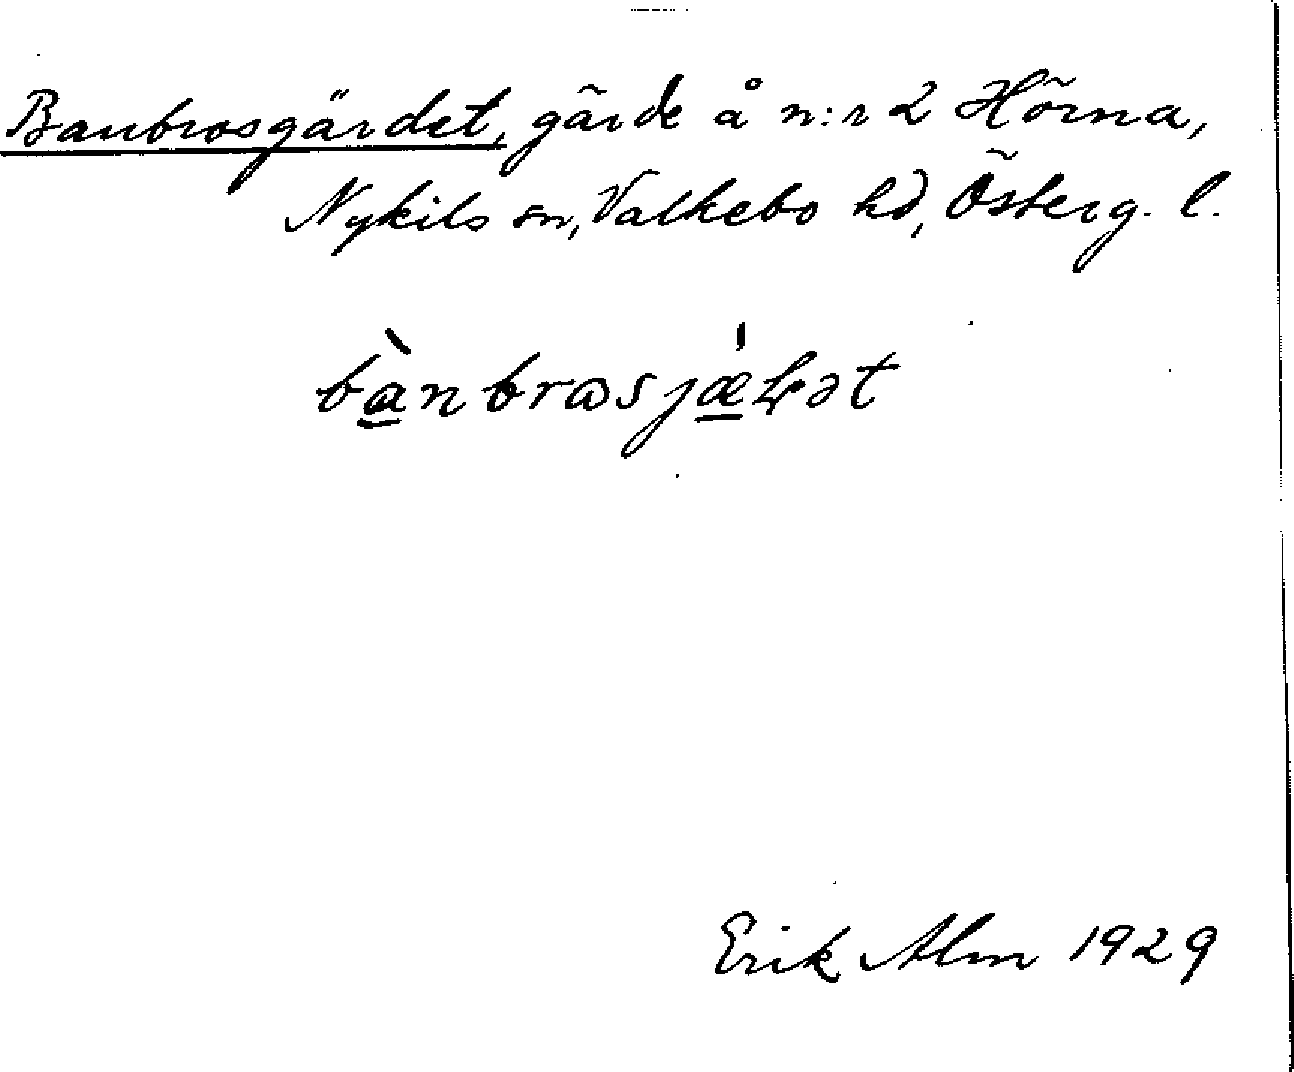 Banbrosgärdet, gärde å n:r 2 Hörna,
Nykils sn, Valkebo hd, Österg. l.
Erik Alm 1929